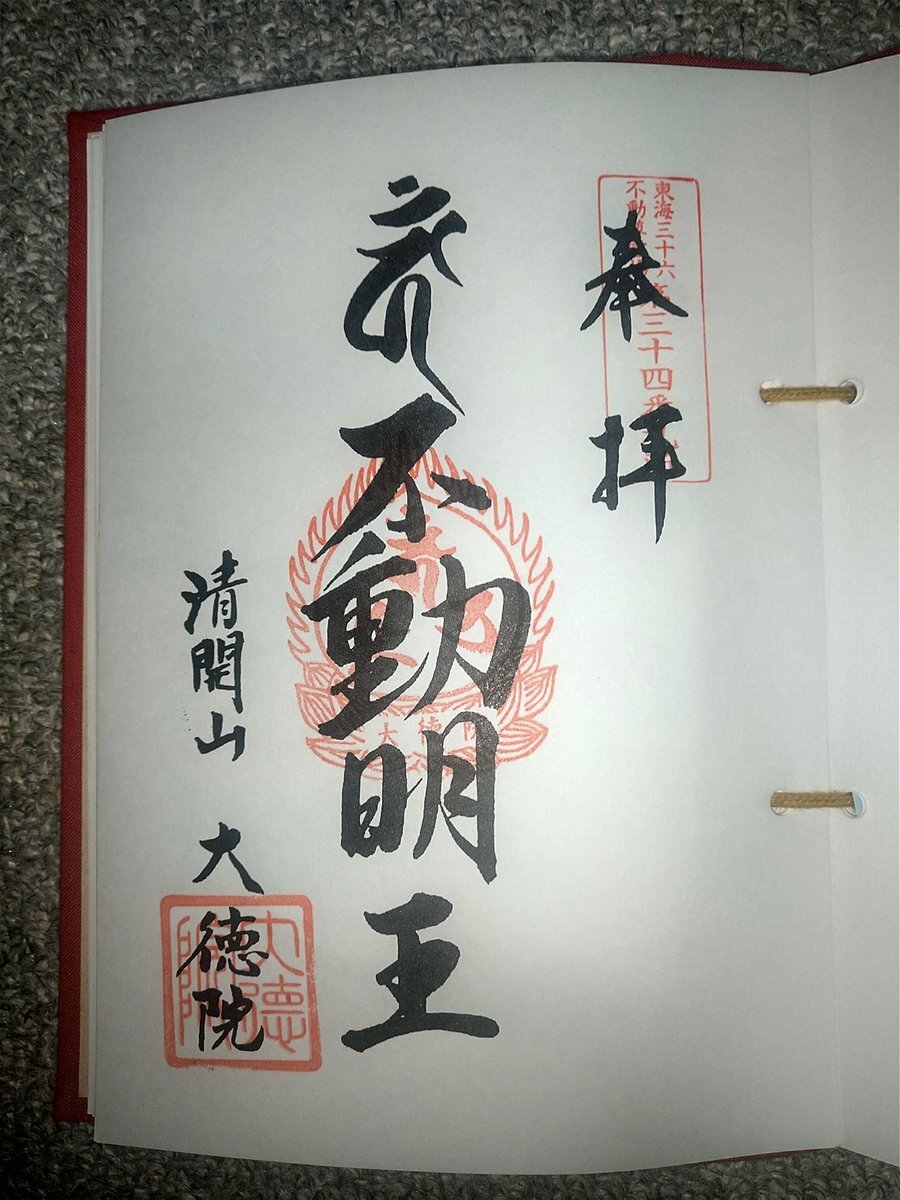 奉拝
東海三十六
不動尊
三十四番
不動明王
大徳院
清開山 大徳院
大徳院